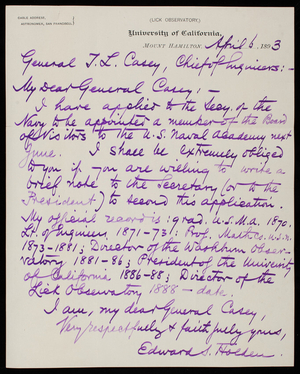 CABLE ADDRESS,
ASTRONOMER, SAN FRANCISCO.
(LICK OBSERVATORY)
University of California.
MOUNT HAMILTON, April 6, 1893
General T. L. Casey, Chief of Engineers:-
My dear General Casey; -
I have applied to the Secy. of the
Navy to be appointed a member of the Board
of Visitors to the U.S. Naval Academy next
June. I shall be extremely obliged
to you if you are willing to write a
brief note to the Secretary (or to the
President) to second this application.
My official record is: grad. U.S.M.A. 1870.
Lt. of Engineers 1871-73: Prof. Maths. U.S.N.
1873-1881; Director of the Washburn Obser-
vatory 1881-86; President of the University
of California 1886-88; Director of the
Lick Observatory 1888 - date.
I am, my dear General Casey,
Very respectfully & faithfully yours,
Edward S. Holden.